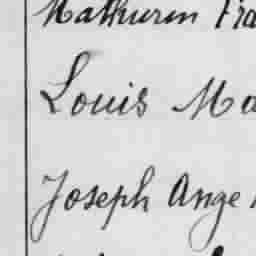 Mathurin Fra
Louis Ma
Joseph Ange